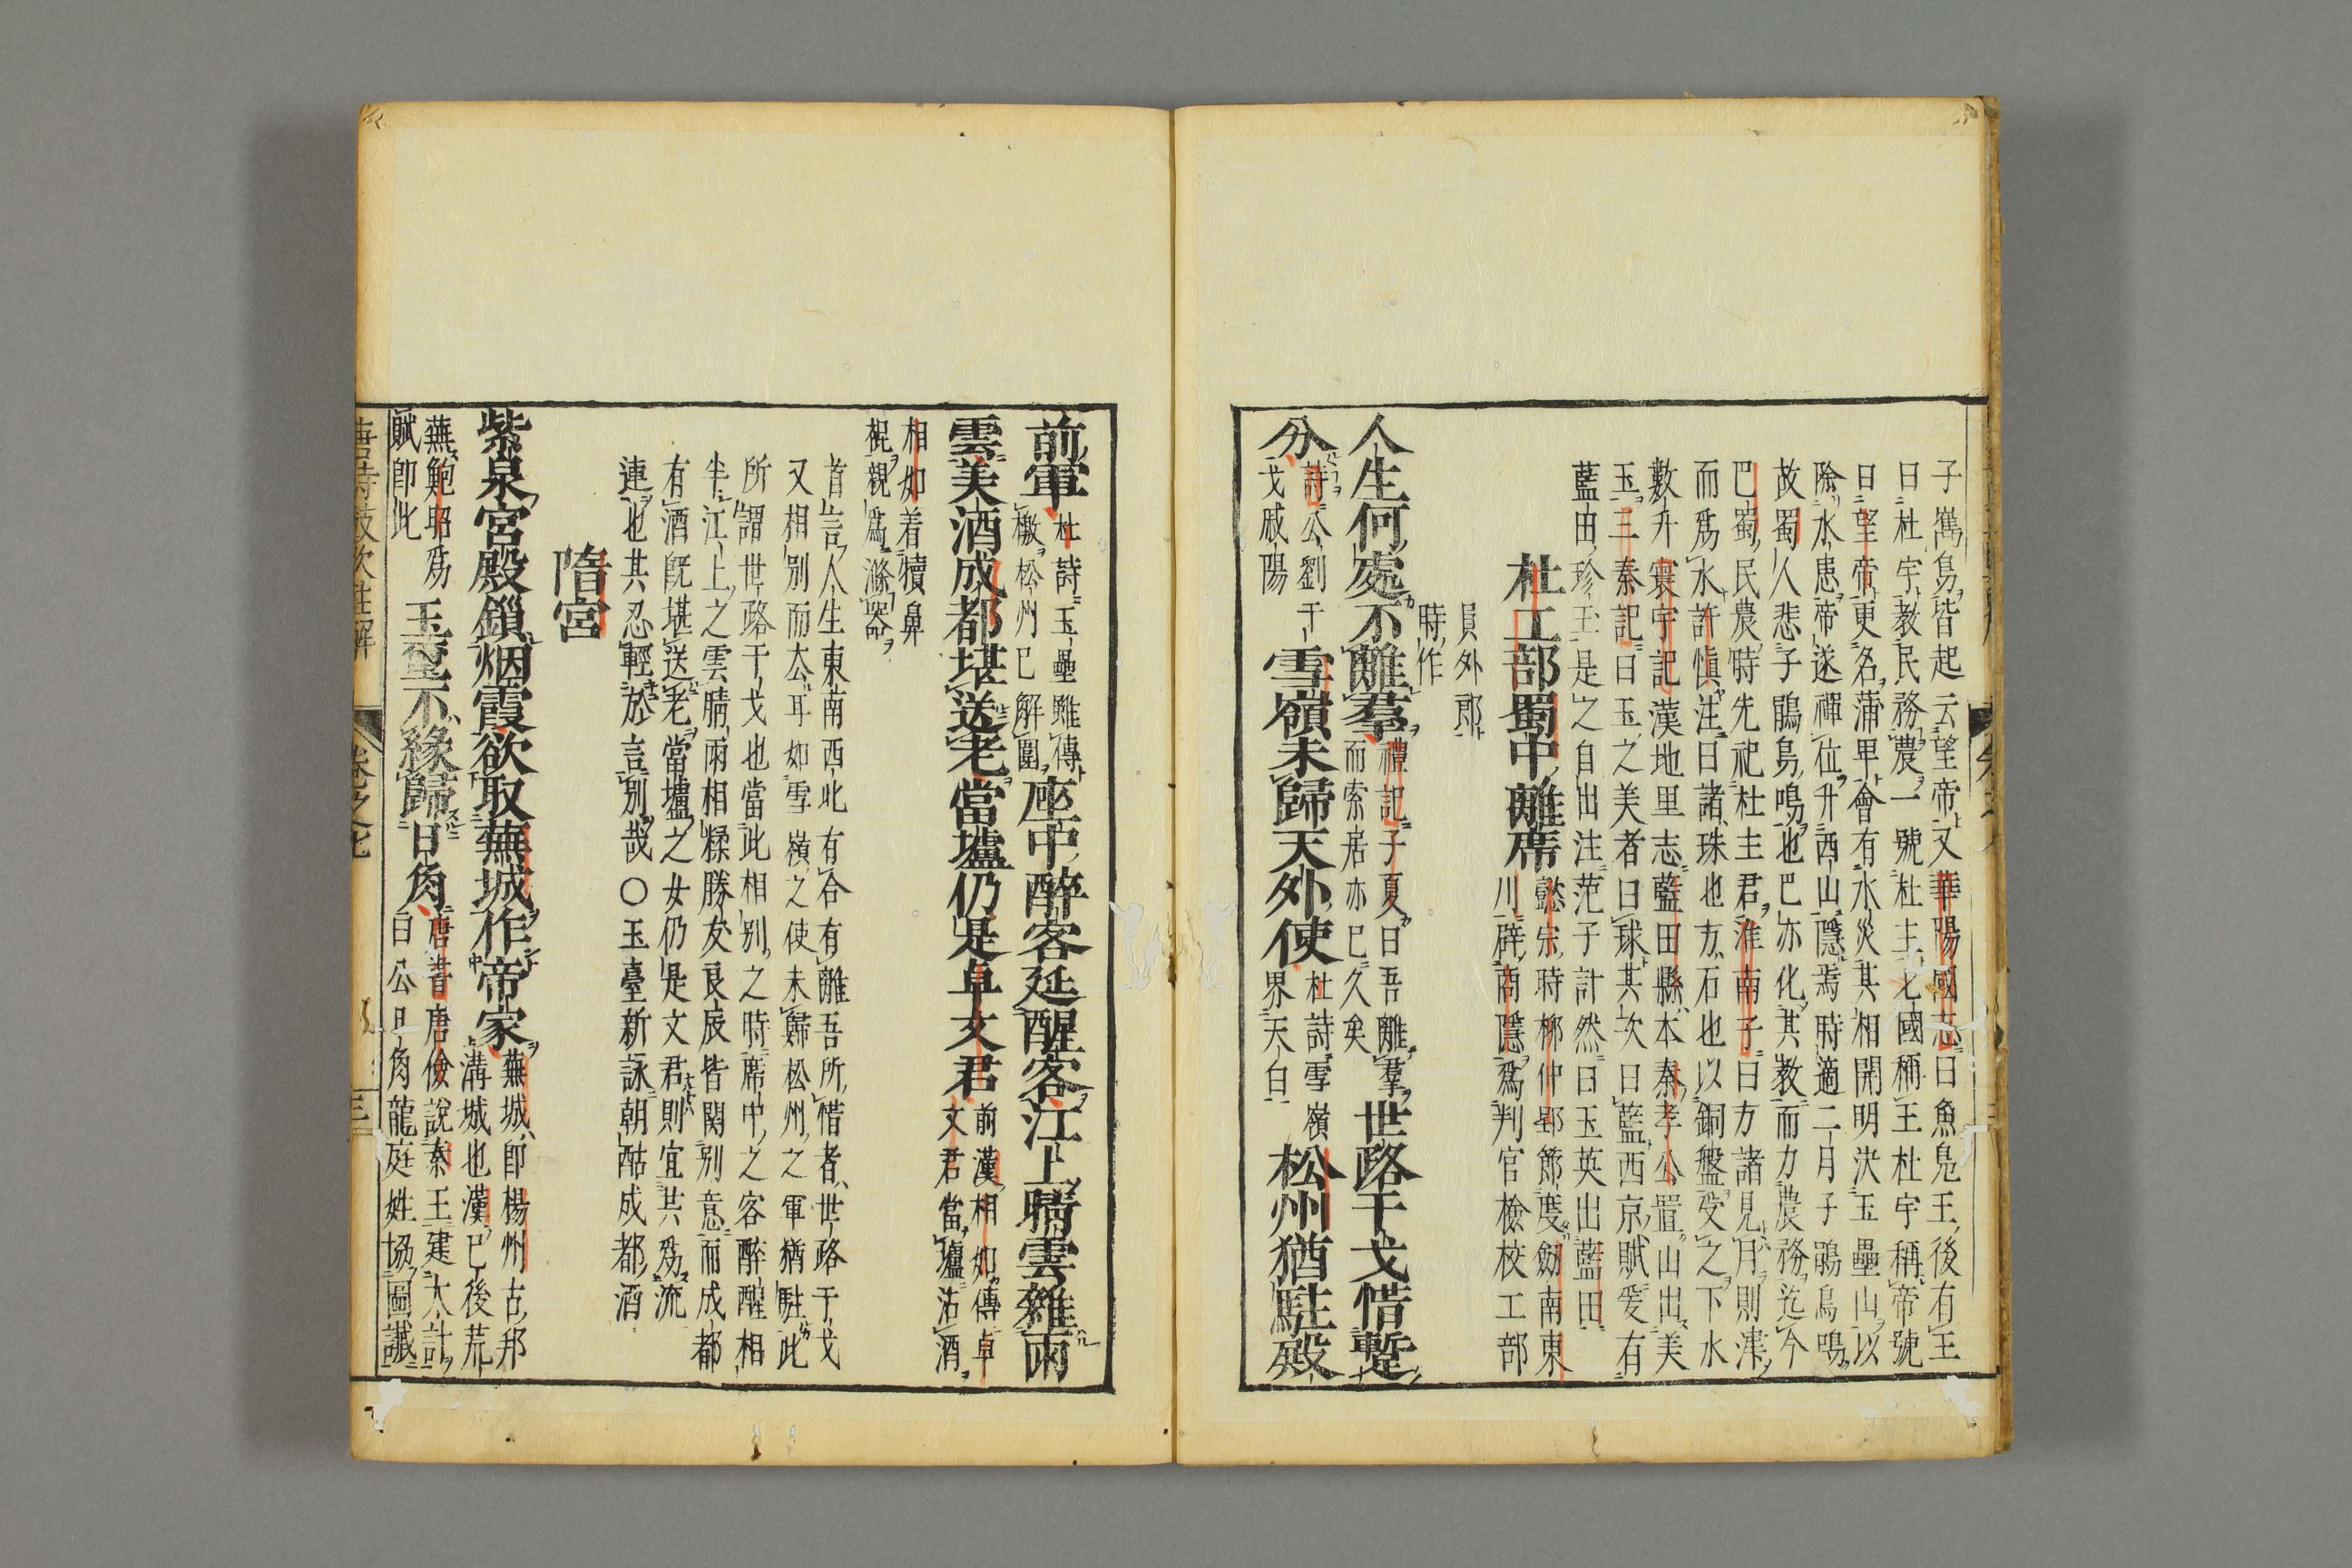 子嶲鳥皆起云望帝又華陽國志曰魚鳧王後有王
曰杜宇教民務農一號杜主七國稱王杜宇稱帝號
曰望帝更名蒲卑會有水災其相開明決玉壘山以
除水患帝遂禪位升西山隱焉時適二月子鵑鳥鳴
故蜀人悲子鵑鳥鳴也巴亦化其教而力農務迄今
巴蜀民農時先祀杜主君淮南子曰方諸見月則津
而爲水許慎注曰諸珠也方石也以銅盤受之下水
數升寰宇記漢地里志藍田縣本秦孝公置山出美
玉三秦記曰玉之美者曰球其次曰藍西京賦爰有
藍田珍玉是之自出注范子計然曰玉英出藍田
杜工部蜀中離席懿宗時柳仲郢節度劔南東
川辟商隱爲判官檢校工部
員外郎
時作
人生何處不離羣禮記子夏曰吾離羣
而索居亦已久矣世路干戈惜蹔
分詩公劉干
戈戚陽雪嶺未歸天外使杜詩雪嶺
界天白松州猶駐殿
前軍杜詩玉壘雖傳
檄松州已解圍座中醉客延醒客江上晴雲雜雨
雲美酒成都堪送老當壚仍是卓文君前漢相如傳卓
文君當壚沽酒
相如着犢鼻
裩親爲滌器
首言人生東南西北有合有離吾所惜者世路干戈
又相別而去耳如雪嶺之使未歸松州之軍猶駐此
所謂世路干戈也當此相別之時席中之客醉醒相
半江上之雲晴雨相糅勝友良辰皆関別意而成都
有酒既堪送老當壚之女仍是文君則宜其爲流
連也其忍輕於言別哉〇玉臺新詠朝酤成都酒
隋宮
紫泉宮殿鎖烟霞欲取蕪城作帝家蕪城即楊州古邗
溝城也漢已後荒
蕪鮑昭爲
賦即此玉璽不緣歸日角唐書唐儉說秦王建大計
曰公日角龍庭姓協圖讖
唐詩鼓吹註解 卷之七